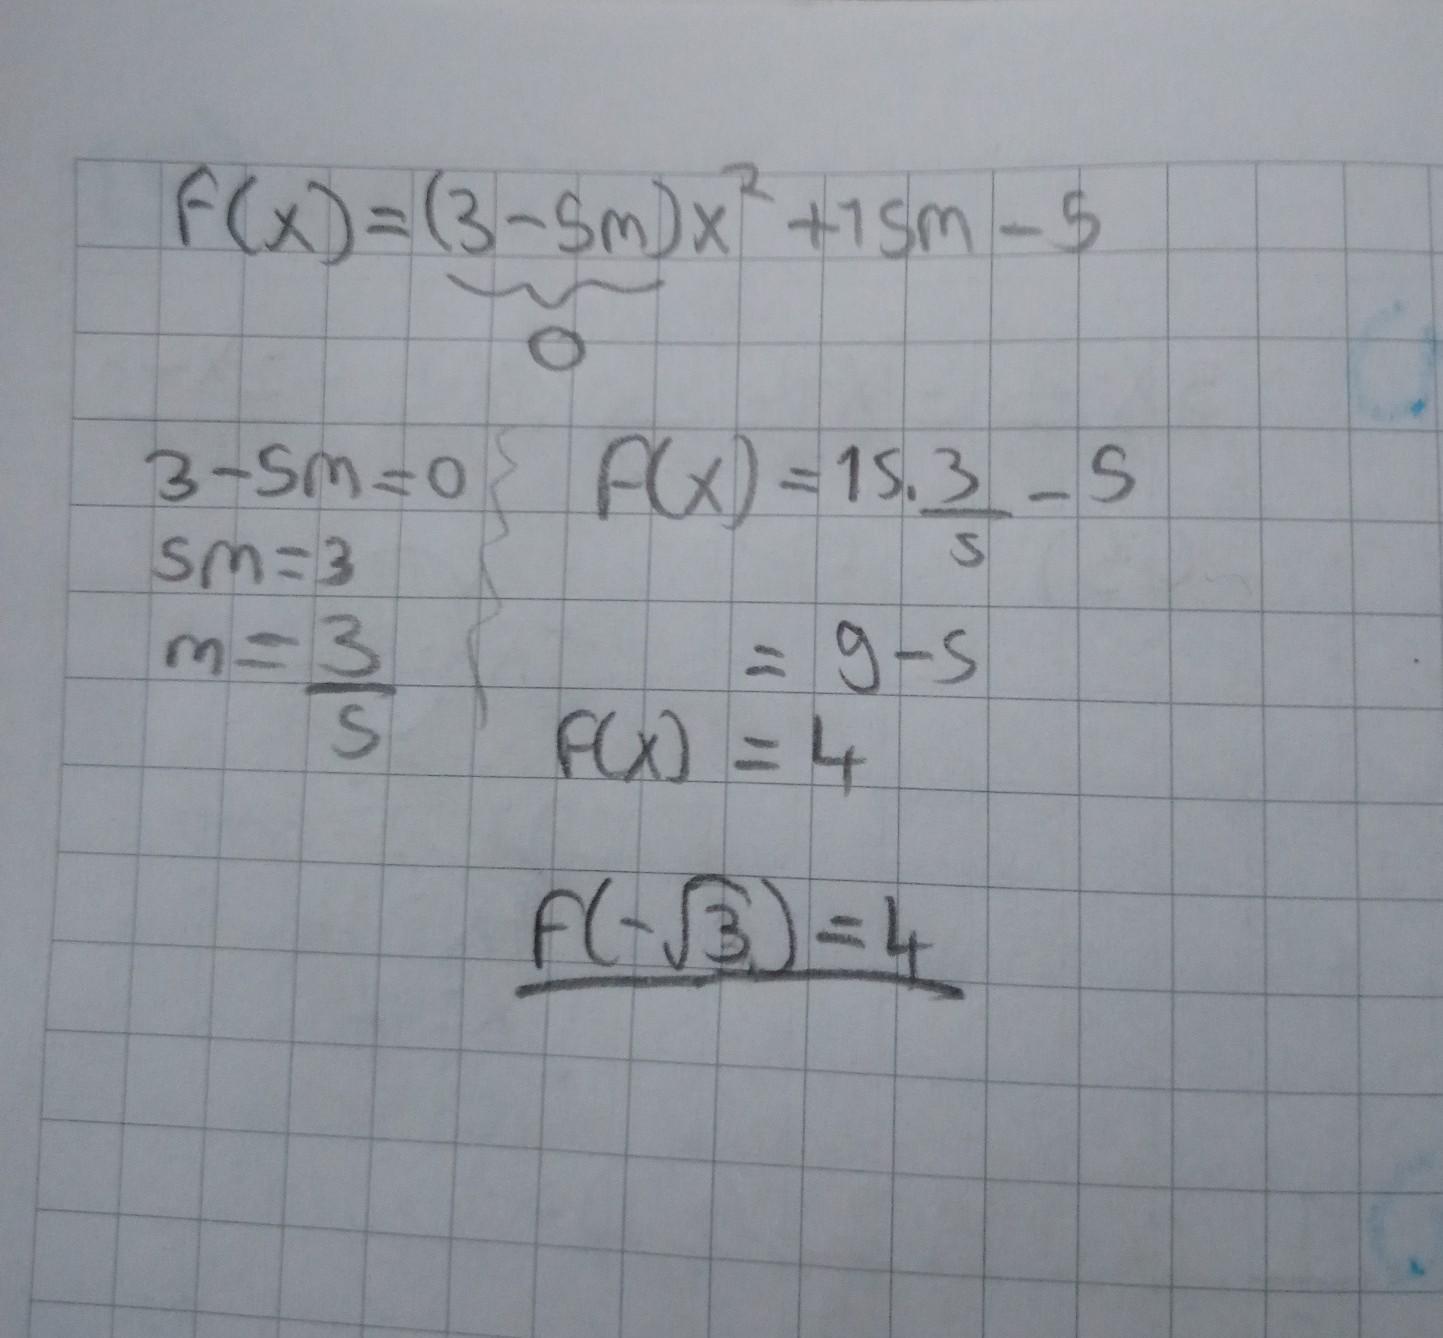 F(x)=(3-5m)x²+15m-5
0
3-5m=0
5m=3
m=3/5
F(x)=15.3/5-5
=9-5
F(x)=4
F(-√3)=4